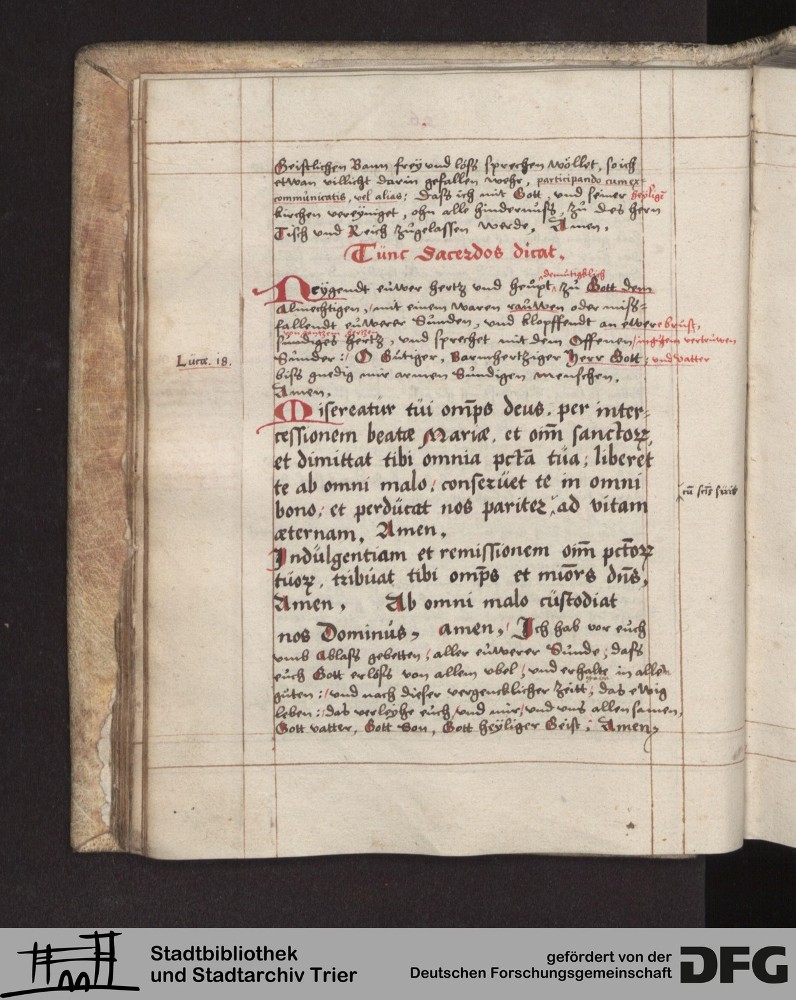 Geistlichen Bann frey und löss sprechen wöllet, so ich
etwan villicht darin gefallen wehr, participando cum ex-
communicatis, vel alias; Dass ich mit Gott, und seiner heylige
kirchen vereÿniget, ohn alle hindernüss, zů des hern
Tisch und Reich zůgelassen werde. Amen.
Tunc Sacerdos dicat.
demütigklich
Neÿgendt eüwer hertz und heüpt, zů Gott dem
Almechtigen, mit einem waren rauwen oder miss-
fallendt eüwerer Sünden, und klopffendt an ewere brust,
von gantzem hertzen
sündiges hertz, und sprechet mit dem Offenen
Lucæ. 18.
Sünder: O Gütiger, Barmhertziger Herr Gott, und vatter
biss gnedig mir armen Sündigen menschen.
Amen.
Misereatur tui omp̄s deus, per inter-
cessionem beatæ Mariæ, et om̄ sanctorꝝ,
et dimittat tibi omnia pctā tua; liberet
te ab omni malo; conservet te in omni
bono, et perducat nos pariter, ad vitam
æternam, Amen.
Indulgentiam et remissionem om̄ pct̄orꝝ
tuorꝝ, tribuat tibi omp̄s et miōrs dn̄s,
Amen. Ab omni malo custodiat
nos Dominus, amen, Ich hab vor euch
umb Ablass gebetten, aller eüwerer Sünde, dass
euch Gott erlöss von allem vbel, und erhalte in allen
guten: und nach dieser vergencklicher Zeitt, das ewig
leben: das verleyhe euch, und mir, und uns allen samen,
Gott vatter, Gott Son, Gott heÿliger Geist; Amen,
Stadtbibliothek
und Stadtarchiv Trier
gefördert von der
Deutschen Forschungsgemeinschaft
DFG